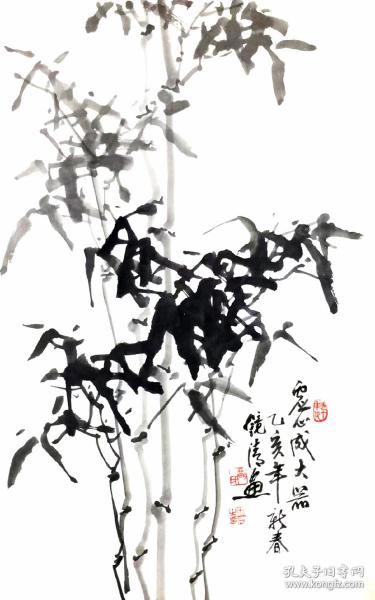 虚心成大器
乙亥年新春
镜清画
孔夫子旧书网